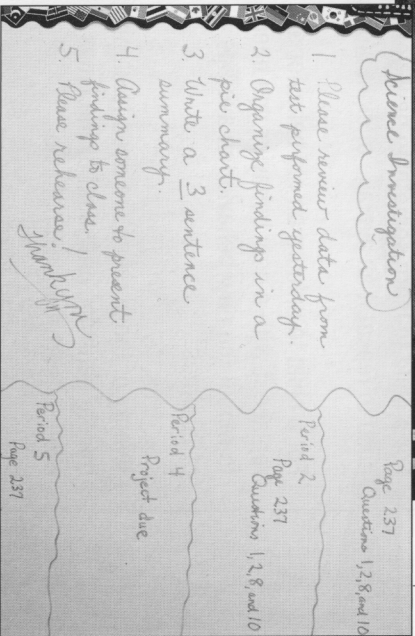 Science Investigation
1. Please review data from
test performed yesterday.
2. Organize findings in a
pie chart.
3. Write a 3 sentence
summary.
4. Assign someone to present
findings to class.
5. Please rehearse!
Thank you
Page 237
Questions 1,2,8, and 10
Period 2
Page 237
Questions 1,2,8, and 10
Period 4
Project due
Period 5
Page 237